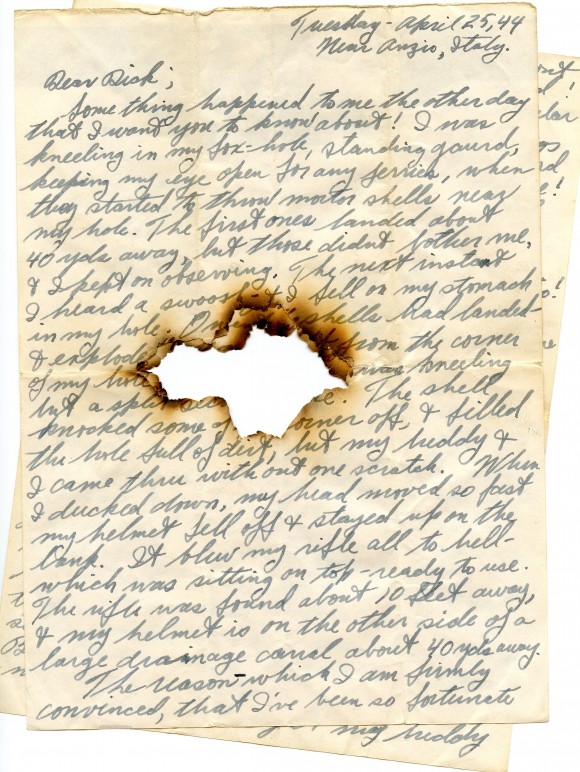 Tuesday - April 25, 44
Near Anzio, Italy.
Dear Dick;
Some thing happened to me the other day
that I want you to know about! I was
kneeling in my fox-hole, standing gaurd,
keeping my eye open for any jerries, when
they started to throw mortor shells near
my hole. The first ones landed about
40 yds away, but those didnt bother me,
& I kept on observing. The next instant
I heard a swoosh & I fell on my stomach
in my hole. shells had landed
& explode from the corner
of my hole was kneeling
but a split The shell
knocked some corner off, & filled
the hole full of dirt, but my buddy &
I came thru with out one scratch. When
I ducked down, my head moved so fast
my helmet fell off & stayed up on the
bank. It blew my rifle all to hell-
which was sitting on top - ready to use.
The rifle was found about 10 feet away,
& my helmet is on the other side of a
large drainage canal about 40 yds away.
The reason which I am firmly
convinced, that I've been so fortunate
my buddy